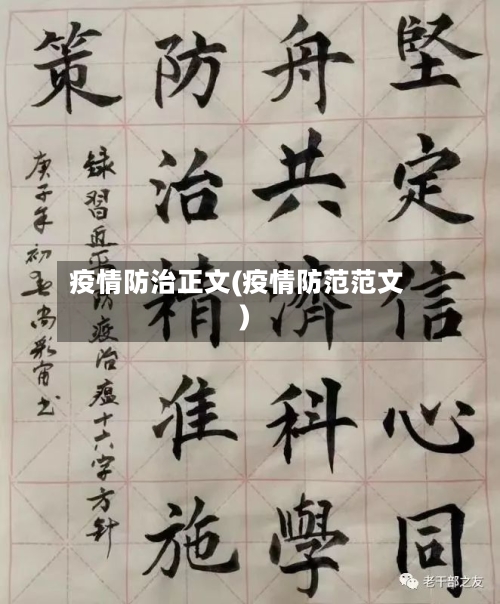 堅定信心同
舟共濟科學
防治精准施
策
録習近平防疫治瘟十六字方针
庚子年初春尚
疫情防治正文(疫情防范范文
)
老干部之友